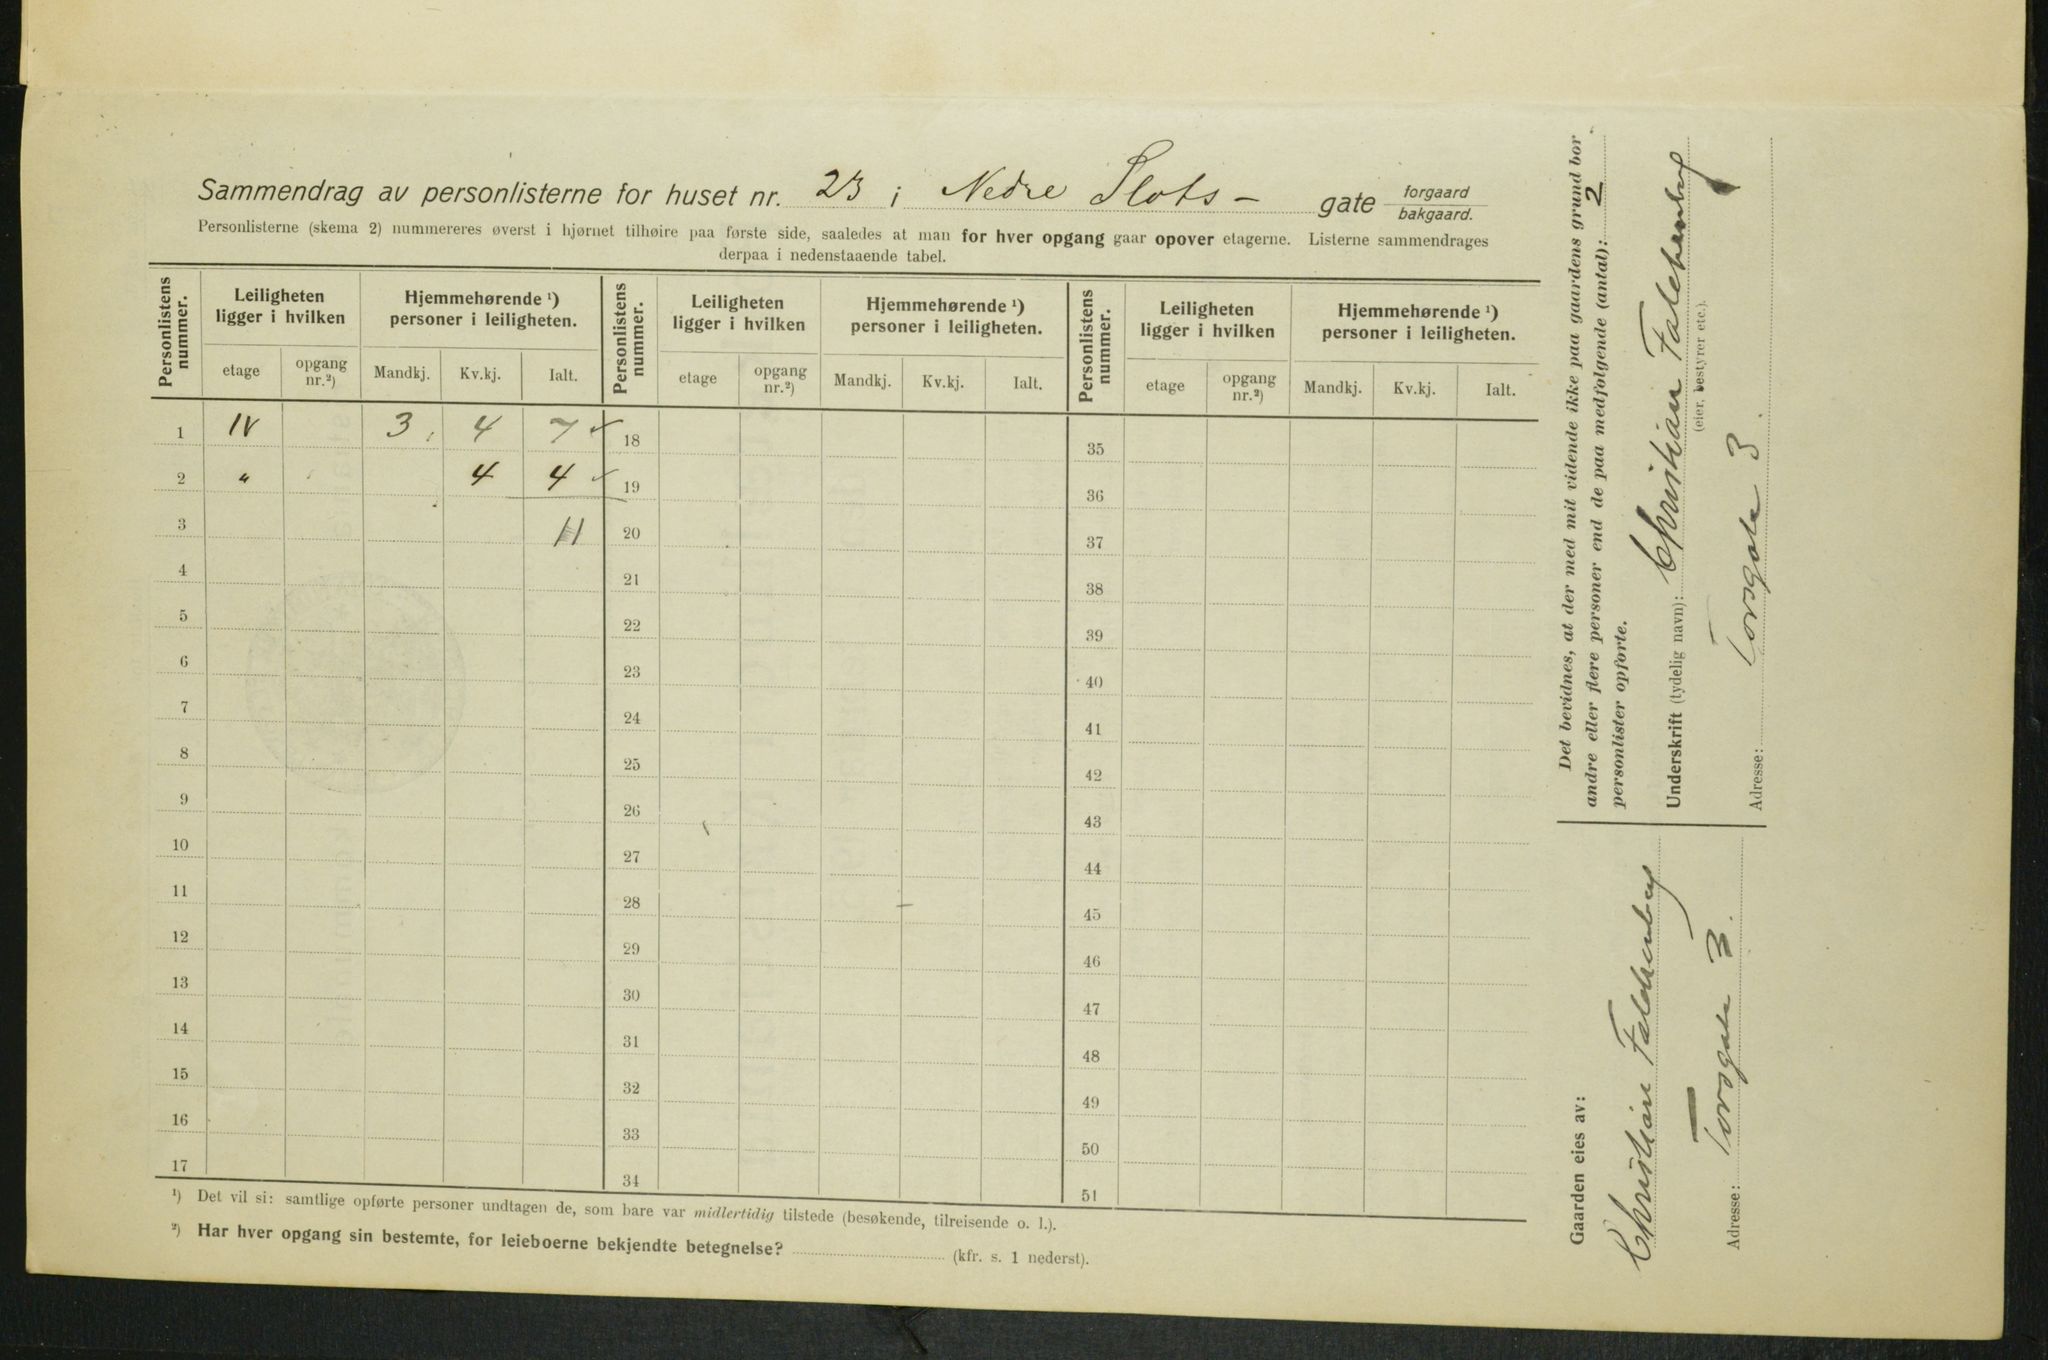 Sammendrag av personlisterne for huset nr. 23 i Nedre Slots - gate forgaard
bakgaard.
Personlisterne (skema 2) nummereres øverst i hjørnet tilhøire paa første side, saaledes at man for hver opgang gaar opover etagerne. Listerne sammendrages
derpaa i nedenstaaende tabel.
Personlistens nummer. Leiligheten ligger i hvilken Hjemmehørende ¹) personer i leiligheten. Personlistens nummer. Leiligheten ligger i hvilken Hjemmehørende ¹) personer i leiligheten. Personlistens nummer. Leiligheten ligger i hvilken Hjemmehørende ¹) personer i leiligheten.
etage opgang nr.²) Mandkj. Kv.kj. Ialt. etage opgang nr.²) Mandkj. Kv.kj. Ialt. etage opgang nr.²) Mandkj. Kv.kj. Ialt.
1 IV 3 4 7 ✓ 18 35
2 " 4 4 ✓ 19 36
3 11 20 37
4 21 38
5 22 39
6 23 40
7 24 41
8 25 42
9 26 43
10 27 44
11 28 45
12 29 46
13 30 47
14 31 48
15 32 49
16 33 50
17 34 51
¹) Det vil si: samtlige opførte personer undtagen de, som bare var midlertidig tilstede (besøkende, tilreisende o. l.).
²) Har hver opgang sin bestemte, for leieboerne bekjendte betegnelse? (kfr. s. 1 nederst).
Det bevidnes, at der med mit vidende ikke paa gaardens grund bor
andre eller flere personer end de paa medfølgende (antal): 2
personlister opførte.
Underskrift (tydelig navn): Christian Falchenberg
(eier, bestyrer etc.).
Adresse: Torvgata 3.
Gaarden eies av:
Christian Falchenberg
Adresse: Torvgata 3.